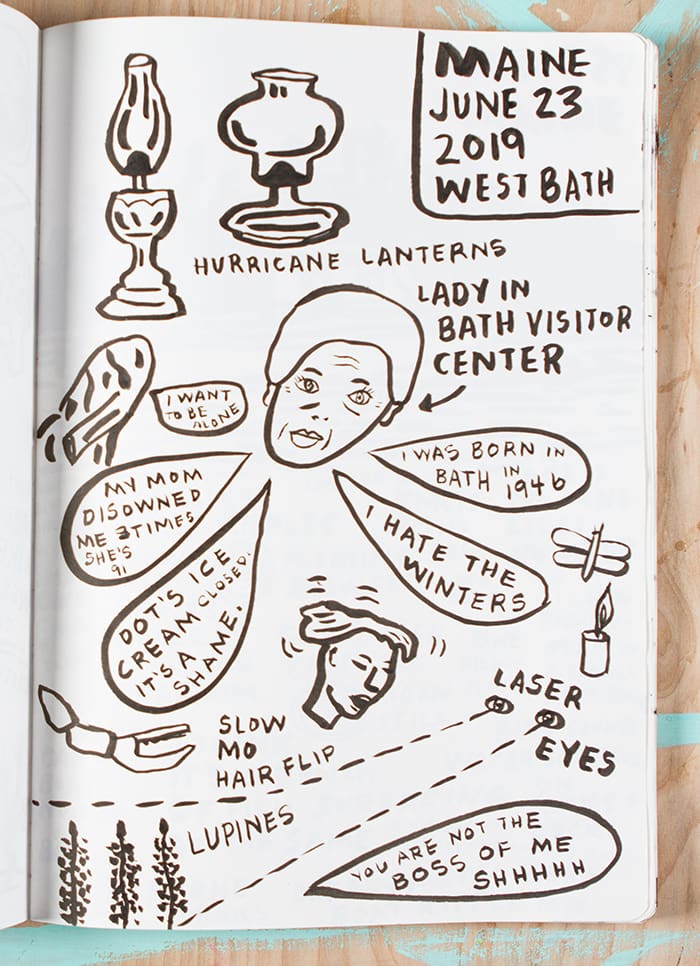 MAINE
JUNE 23
2019
WEST BATH
HURRICANE LANTERNS
LADY IN
BATH VISITOR
CENTER
I WANT
TO BE
ALONE
I WAS BORN IN
BATH IN
1946
MY MOM
DISOWNED
ME 3 TIMES
SHE'S
91
I HATE THE
WINTERS
DOT'S ICE
CREAM CLOSED.
IT'S A
SHAME.
SLOW
MO
HAIR FLIP
LASER
EYES
LUPINES
YOU ARE NOT THE
BOSS OF ME
SHHHHH